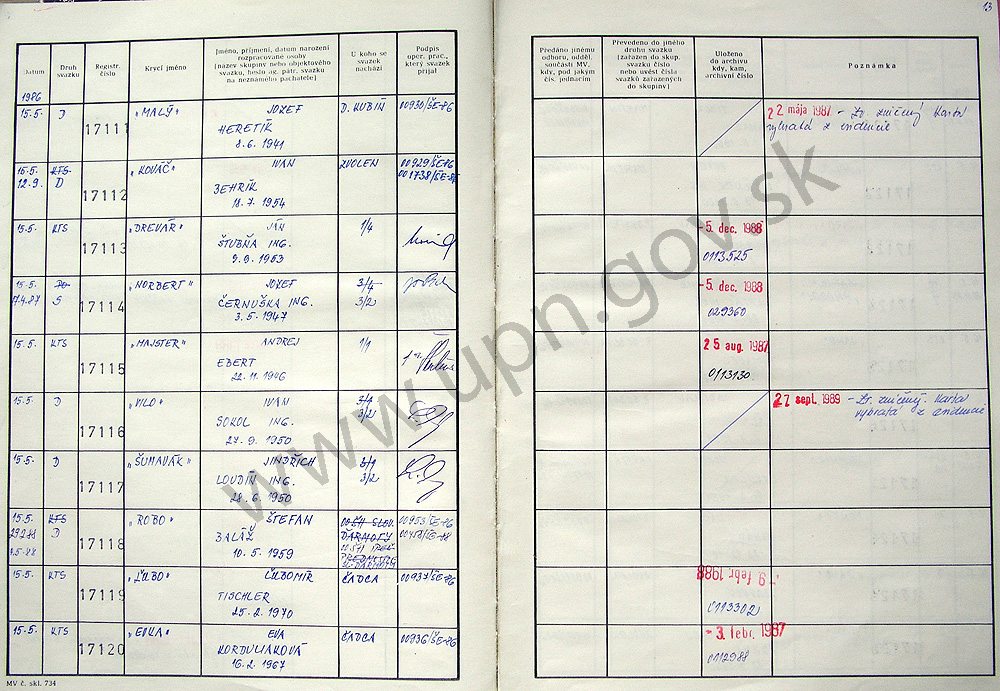 13
Datum
Druh svazku
Registr. číslo
Krycí jméno
Jméno, příjmení, datum narození
rozpracované osoby
(název skupiny nebo objektového
svazku, heslo ag. pátr. svazku
na neznámého pachatele)
U koho se
svazek
nachází
Podpis
oper. prac.,
který svazek
přijal
Předáno jinému
odboru, odděl.
součásti MV,
kdy, pod jakým
čís. jednacím
Převedeno do jiného
druhu svazku
(zařazen do skup.
svazku číslo
nebo uvést čísla
svazků zařazených
do skupiny)
Uloženo
do archivu
kdy, kam,
archivní číslo
Poznámka
1986
15.5. D 17111 „MALÝ" JOZEF D. KUBÍN 00930/ŠE-86
HERETIK
8.6. 1941
22 mája 1987 - Zv. zničený Karta
vybratá z evidencie
15.5. KTS 17112 „KOVÁČ" IVAN ZVOLEN 00929/ŠE-86
12.9. D 001738/ŠE-86
BEHRÍK
18.7. 1954
15.5. KTS 17113 „DREVÁR" JÁN 1/4
ŠTUBŇA ING.
9.9. 1953
-5. dec. 1988
0113525
15.5. PO 17114 „NORBERT" JOZEF 3/4
7.4.87 S ČERNUŠKA ING. 3/2
3.5. 1947
-5. dec. 1988
029360
15.5. KTS 17115 „MAJSTER" ANDREJ 1/1
EBERT
22.11. 1946
25 aug. 1987
0113130
15.5. D 17116 „VILO" IVAN 3/1
SOKOL ING. 3/2
27.9. 1950
27 sept. 1989 - Zv. zničený. Karta
vybratá z evidencie
15.5. D 17117 „ŠUMAVÁK" JINDŘICH 3/1
LOUDIN ING. 3/2
28.6. 1950
15.5. KTS 17118 „ROBO" ŠTEFAN 00953/ŠE-86
D BALÁŽ
10.5. 1959
15.5. KTS 17119 „ĽUBO" ĽUBOMÍR ČADCA 00937/ŠE-86
TISCHLER
25.2. 1970
-9 febr. 1988
0113302
15.5. KTS 17120 „EVKA" EVA ČADCA 00936/ŠE-86
KORDULIAKOVÁ
16.2. 1967
-3. febr. 1987
0112988
MV č. skl. 734
www.upn.gov.sk